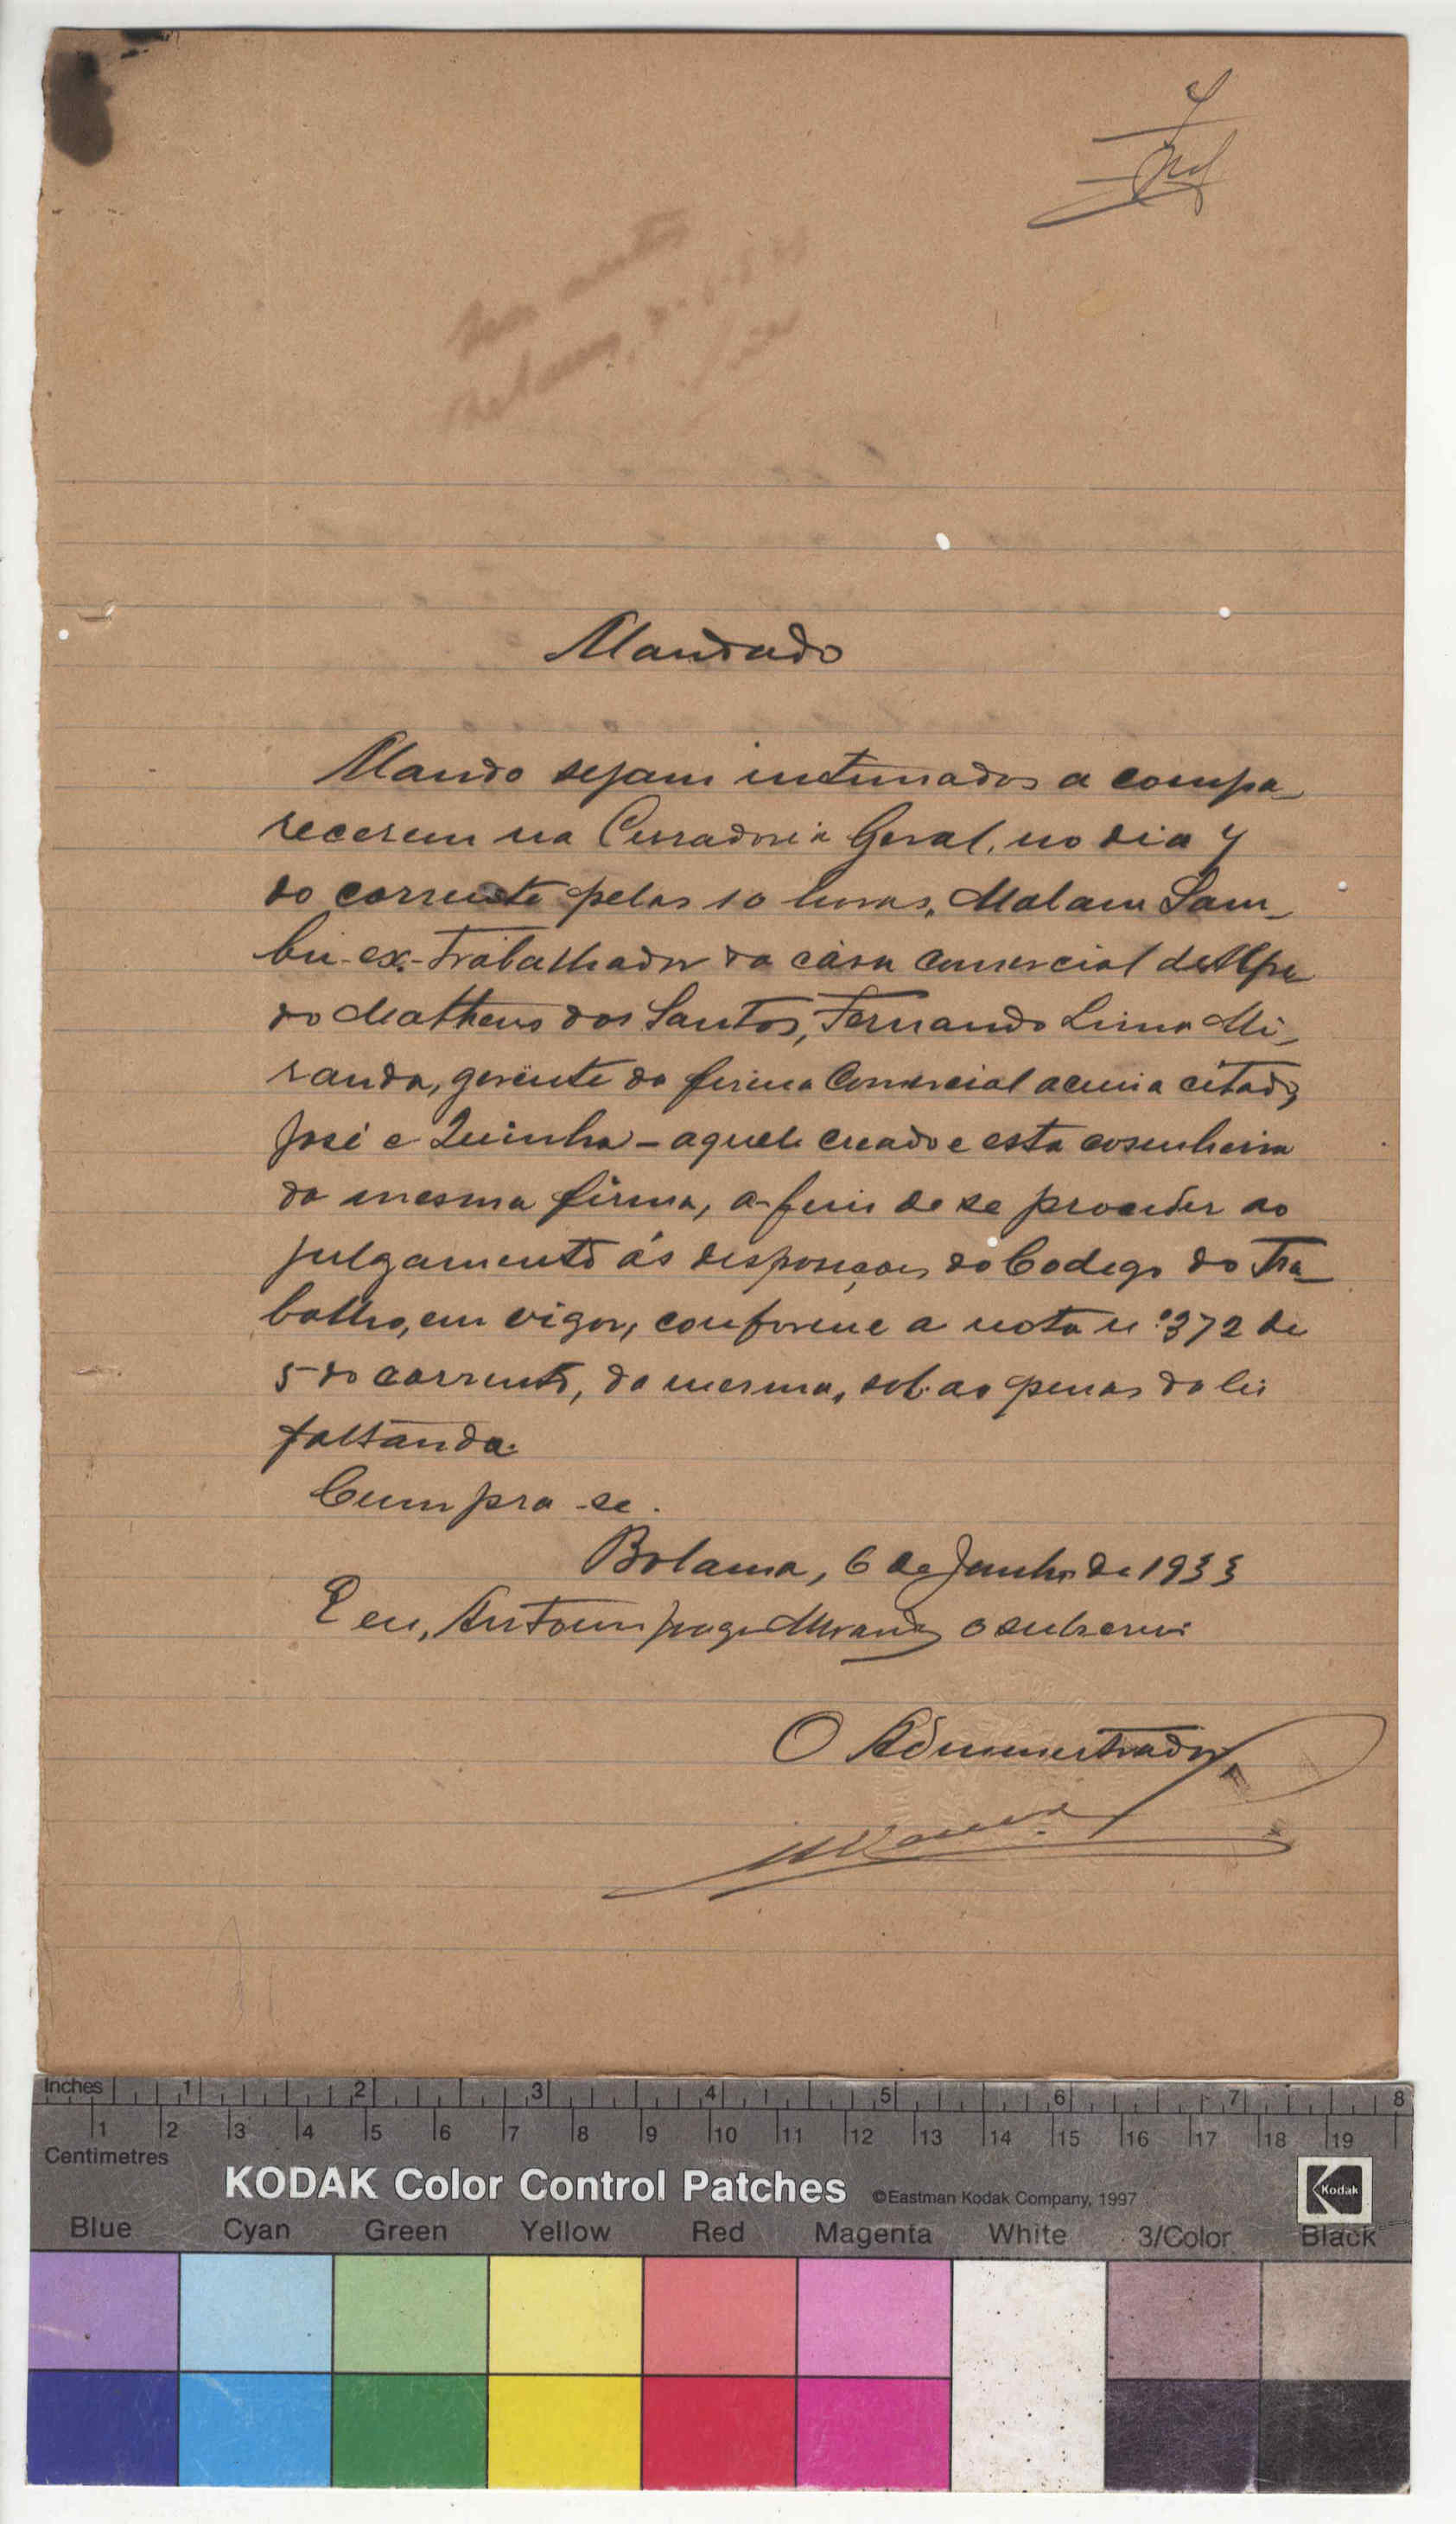 Mandado
Mando sejam intimados a compa-
recerem na Curadoria Geral, no dia 7
do corrente pelas 10 horas, Malam Sam-
bú-ex-trabalhador da cása comercial de Alfre
do Matheus dos Santos, Fernando Lima Mi-
randa, gerente da firma Comercial acima citada,
José e Quinha - aquele creado e esta cosinheira
da mesma firma, a-fim de se proceder ao
julgamento ás desposiçoes do Codego do Tra-
balho, em vigor, conforme a nota n.º 372 de
5 do corrente, da mesma, sob as penas da lei
faltando.
Cumpra-se.
Bolama, 6 de Junho de 1933
E eu, Miranda o subscrevi
O Administrador,
Inches 1 2 3 4 5 6 7 8
1 2 3 4 5 6 7 8 9 10 11 12 13 14 15 16 17 18 19
Centimetres
KODAK Color Control Patches ©Eastman Kodak Company, 1997 Kodak
Blue Cyan Green Yellow Red Magenta White 3/Color Black